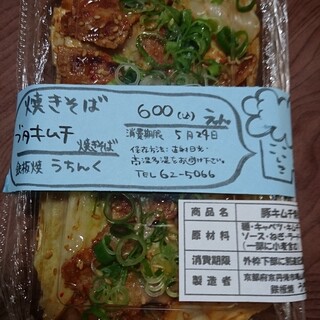 焼きそば
ブタキムチ
焼きそば
鉄板焼 うちんく
600(込)
えん
消費期限 5月24日
保存方法:直射日光・
高温多湿をお避け下さい。
TEL 62-5066
商品名 豚キムチ
原材料 麺・キャベツ・キムチ
ソース・ねぎ・ラー
(一部に小麦含む
消費期限 外枠下部に別途記
製造者 京都府京丹後市
鉄板焼